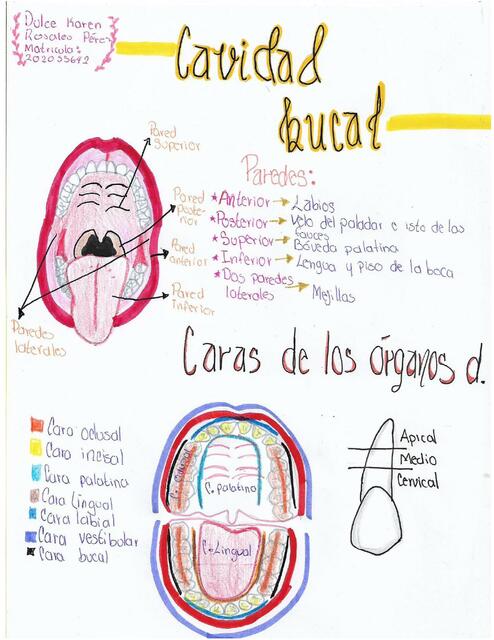 Dulce Karen
Rosales Pérez
Matricula:
202055642
Cavidad
bucal
Pared
superior
Pared
poste-
rior
Pared
anterior
Pared
inferior
Paredes
laterales
Paredes:
★Anterior → Labios
★Posterior → Velo del paladar e isto de las
fauces
★Superior → Bóveda palatina
★Inferior → Lengua y piso de la boca
★Dos paredes
laterales → Mejillas
Caras de los órganos d.
Cara oclusal
Cara incisal
Cara palatina
Cara lingual
Cara labial
Cara vestibular
Cara bucal
C. palatina
C. Lingual
Apical
Medio
Cervical